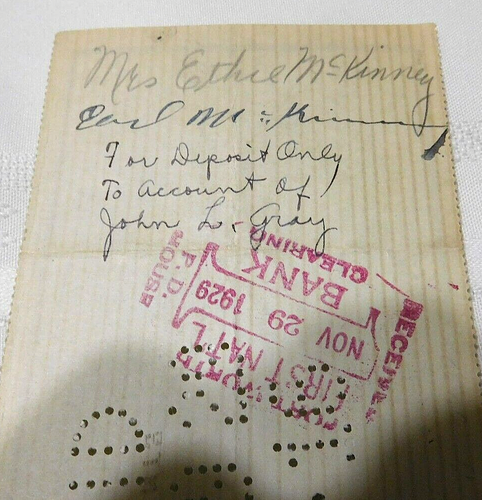 Mrs Ethel McKinney
Earl McKinney
For Deposit Only
To Account of
John L. Gray
RECEIVED
FORT WORTH
FIRST NAT'L
NOV 29 1929
BANK
CLEARING
HOUSE
P. D.